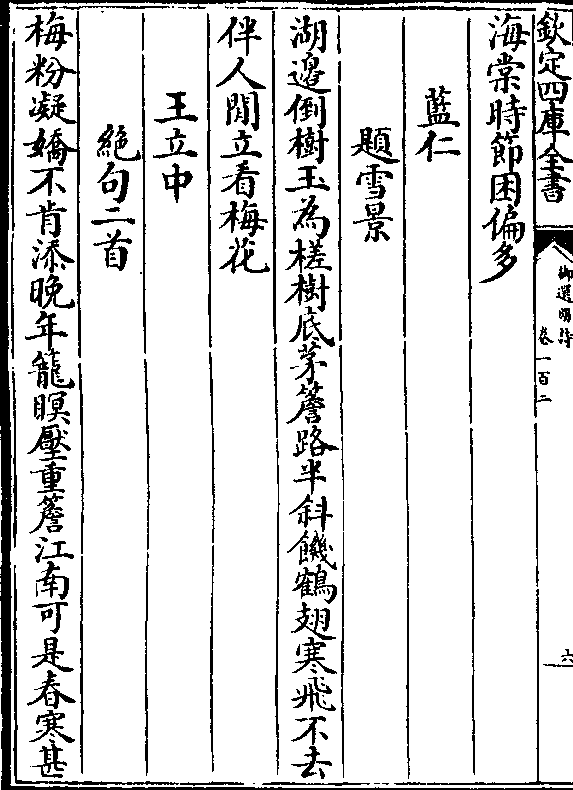 欽定四庫全書
御選明詩
卷一百二
六
海棠時節困偏多
藍仁
題雪景
湖邊倒樹玉為槎樹底茅簷路半斜饑鶴翅寒飛不去
伴人閒立看梅花
王立中
絕句二首
梅粉凝嬌不肯添晚年籠暝壓重簷江南可是春寒甚